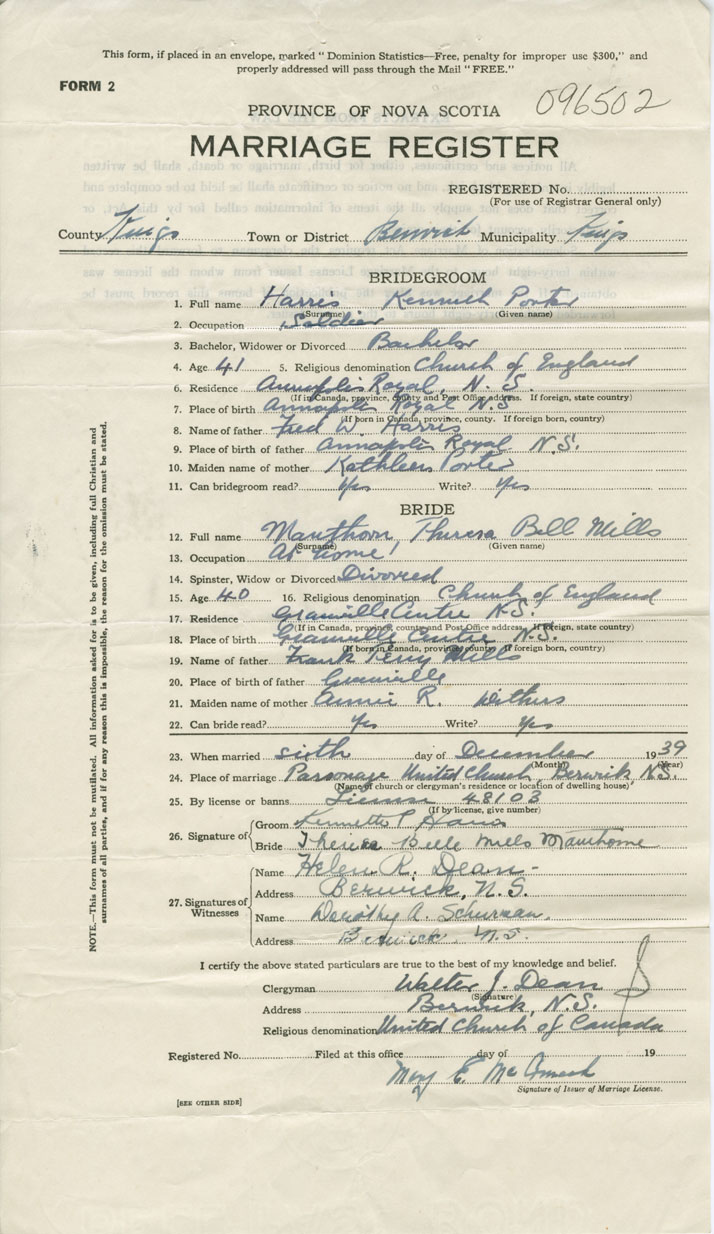 This form, if placed in an envelope, marked " Dominion Statistics—Free, penalty for improper use $300," and
properly addressed will pass through the Mail " FREE."
FORM 2
096502
PROVINCE OF NOVA SCOTIA
MARRIAGE REGISTER
REGISTERED No.
(For use of Registrar General only)
County Kings Town or District Berwick Municipality Kings
BRIDEGROOM
1. Full name Harris Kenneth Porter
(Surname) (Given name)
2. Occupation Soldier
3. Bachelor, Widower or Divorced Bachelor
4. Age 41 5. Religious denomination Church of England
6. Residence Annapolis Royal, N. S.
(If in Canada, province, county and Post Office address. If foreign, state country)
7. Place of birth Annapolis Royal N.S.
(If born in Canada, province, county. If foreign born, country)
8. Name of father Fred W. Harris
9. Place of birth of father Annapolis Royal N.S.
10. Maiden name of mother Kathleen Porter
11. Can bridegroom read? Yes Write? Yes
BRIDE
12. Full name Theresa Bell Mills
(Surname) (Given name)
13. Occupation At home
14. Spinster, Widow or Divorced Divorced
15. Age 40 16. Religious denomination Church of England
17. Residence Granville Centre N.S.
(If in Canada, province, county and Post Office address. If foreign, state country)
18. Place of birth Granville Centre N.S.
(If born in Canada, province, county. If foreign born, country)
19. Name of father Frank Percy Mills
20. Place of birth of father Granville
21. Maiden name of mother Annie R. Withers
22. Can bride read? Yes Write? Yes
23. When married sixth day of December 1939
(Month) (Year)
24. Place of marriage Parsonage United Church, Berwick, N.S.
(Name of church or clergyman's residence or location of dwelling house)
25. By license or banns License 48103
(If by license, give number)
26. Signature of
Groom Kenneth P Harris
Bride Theresa Belle Mills
27. Signatures of Witnesses
Name Helen R. Dean
Address Berwick, N.S.
Name Dorothy A. Schurman.
Address Berwick. N.S.
I certify the above stated particulars are true to the best of my knowledge and belief.
Clergyman Walter J. Dean
(Signature)
Address Berwick, N.S.
Religious denomination United Church of Canada
Registered No. Filed at this office day of 19
Mary E.
Signature of Issuer of Marriage License.
[SEE OTHER SIDE]
NOTE.—This form must not be mutilated. All information asked for is to be given, including full Christian and
surnames of all parties, and if for any reason this is impossible, the reason for the omission must be stated.